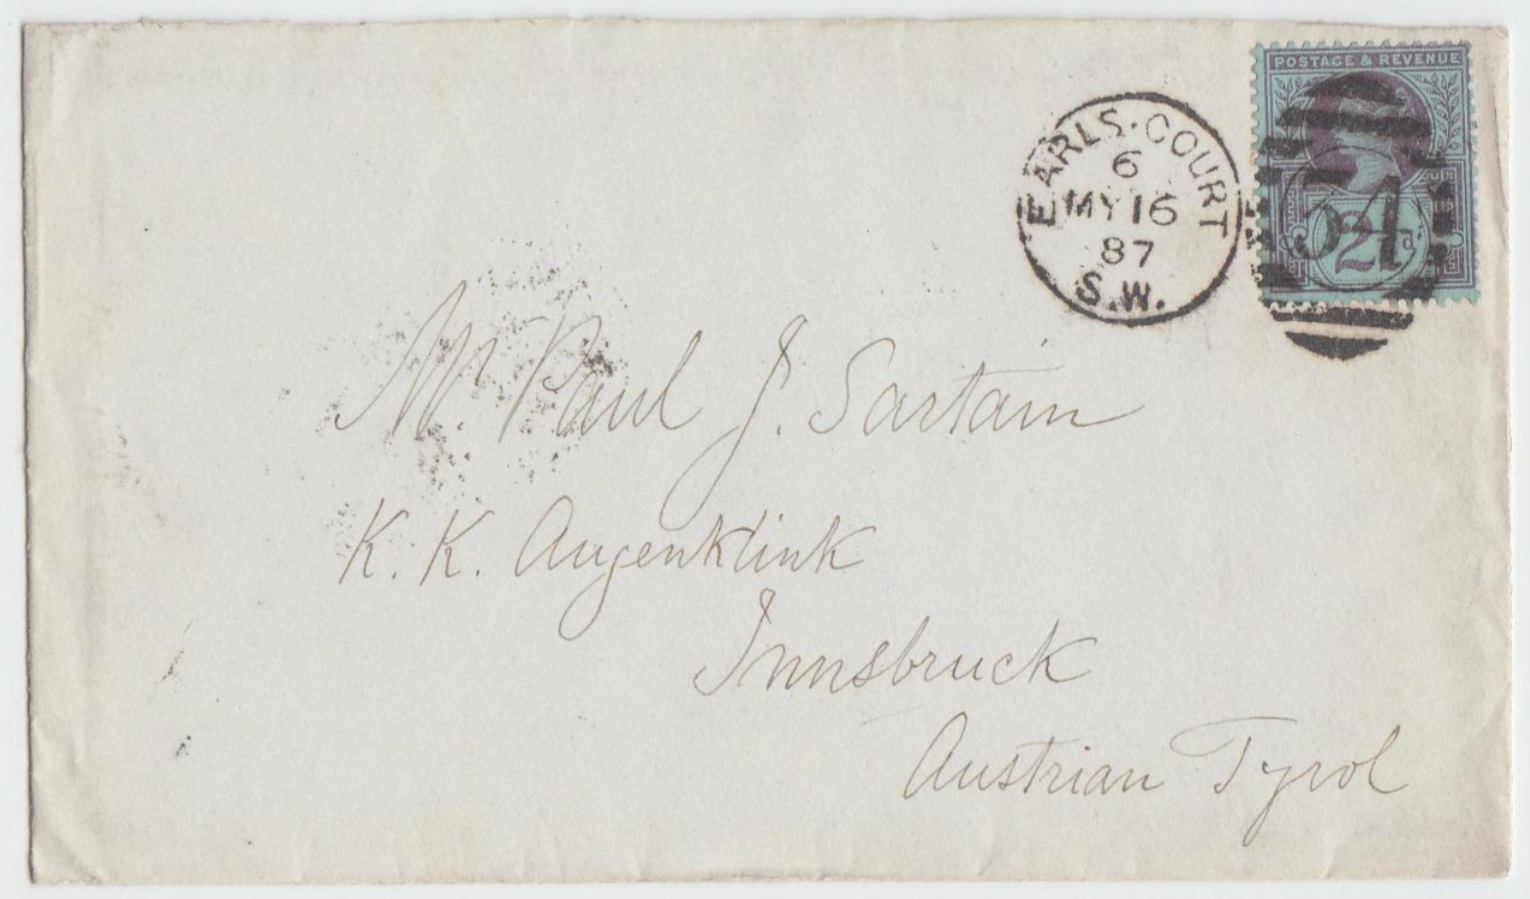 POSTAGE & REVENUE
EARLS·COURT
6
MY 16
87
S.W.
2½d.
Mr. Paul J. Sartain
K. K. Augenklink
Innsbruck
Austrian Tyrol